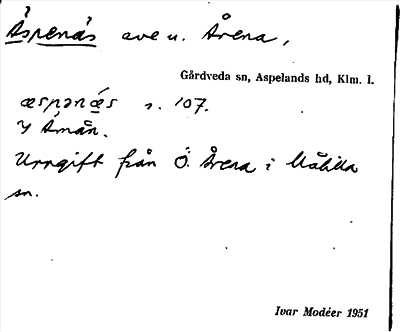 Äspenäs ave u. Årena,
Gårdveda sn, Aspelands hd, Klm. l.
æspənæs s. 107.
Y Åmån.
Uppgift från Ö. Årena i Målilla
sn.
Ivar Modéer 1951